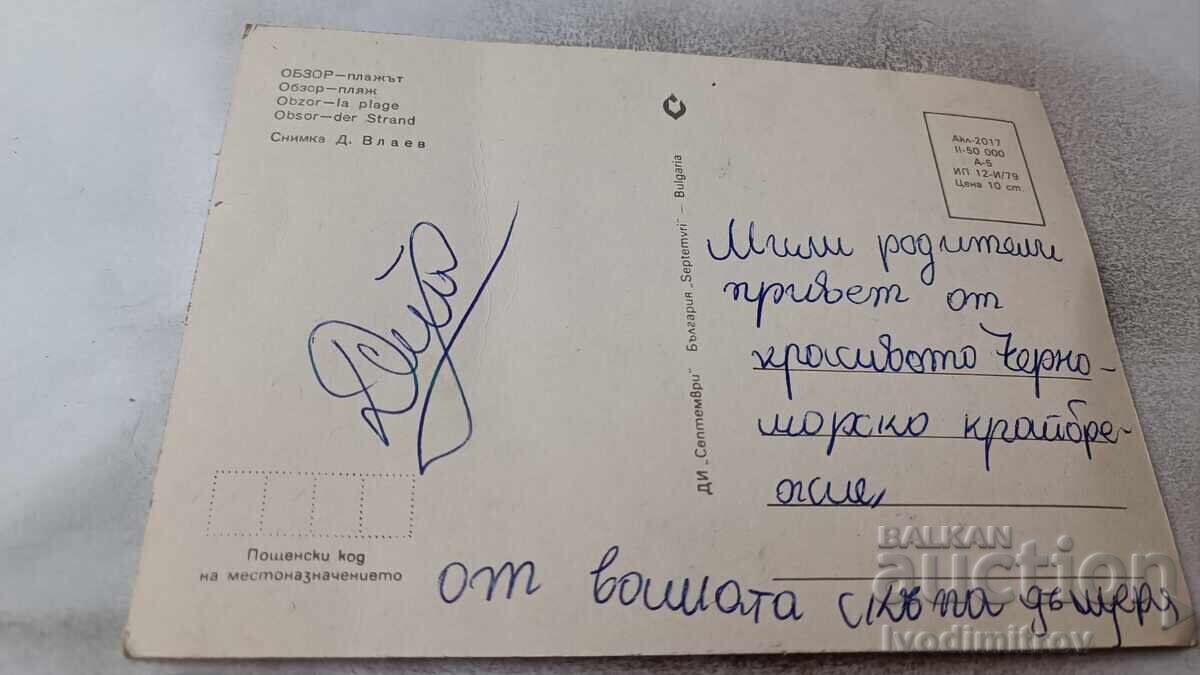 ОБЗОР—плажът
Обзор—пляж
Obzor—la plage
Obsor—der Strand
Снимка Д. Влаев
Пощенски код
на местоназначението
ДИ „Септември" България „Septemvri" — Bulgaria
Акл-2017
II-50 000
А-5
ИП 12-И/79
Цена 10 ст.
Мили родители
привет от
красивото Черно-
морско крайбре-
жие,
от вашата скъпа дъщеря
BALKAN
auction
Ivodimitrov